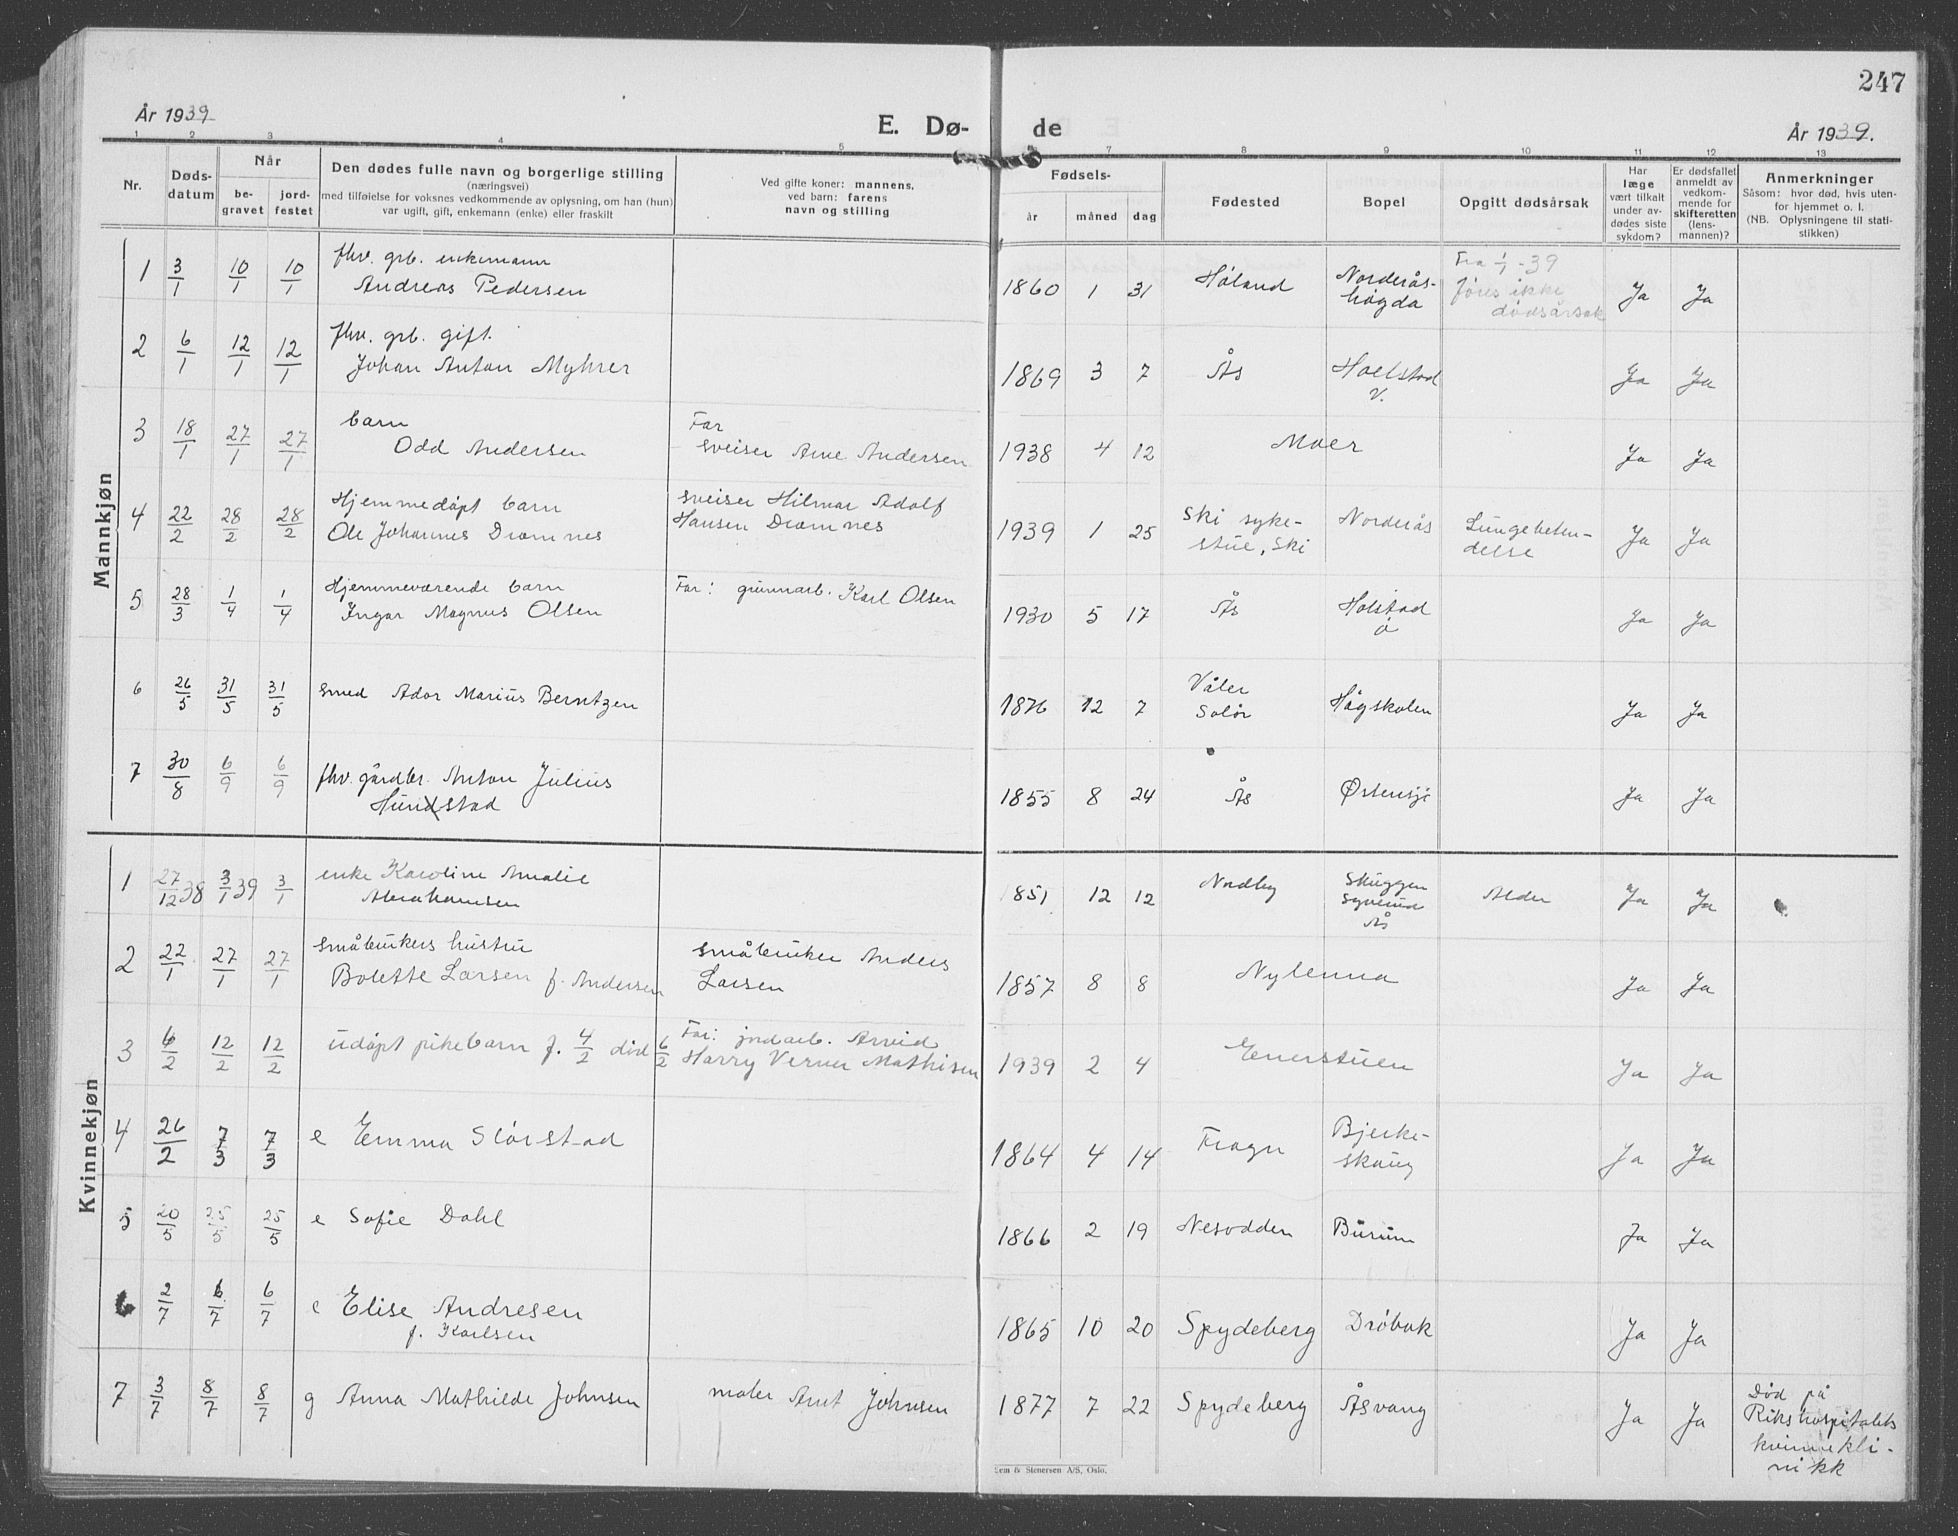 247
År 1939
E. Dø- de
År 1939.
1 2 3 4 5 7 8 9 10 11 12 13
Nr.
Døds-
datum
Når
be-
gravet
jord-
festet
Den dødes fulle navn og borgerlige stilling
(næringsvei)
med tilføielse for voksnes vedkommende av oplysning, om han (hun)
var ugift, gift, enkemann (enke) eller fraskilt
Ved gifte koner: mannens,
ved barn: farens
navn og stilling
Fødsels-
år måned dag
Fødested
Bopel
Opgitt dødsårsak
Har
læge
vært tilkalt
under av-
dødes siste
sykdom?
Er dødsfallet
anmeldt av
vedkom-
mende for
skifteretten
(lens-
mannen)?
Anmerkninger
Såsom: hvor død, hvis uten-
for hjemmet o. l.
(NB. Oplysningene til stati-
stikken)
Mannkjøn
1 3/1 10/1 10/1 fhv. grb. enkemann
Andreas Pedersen
1860 1 31 Høland Norderås-
høgda
Fra 1/1-39
føres ikke
dødsårsak
Ja Ja
2 6/1 12/1 12/1 fhv. grb. gift.
Johan Anton Myhrer
1869 3 7 Ås Holstad
V.
Ja Ja
3 18/1 27/1 27/1 barn
Odd Andersen
Far
sveiser Arne Andersen
1938 4 12 Moer Ja Ja
4 22/2 28/2 28/2 Hjemmedøpt barn
Ole Johannes Dramnes
sveiser Hilmar Adolf
Hansen Dramnes
1939 1 25 Ski syke-
stue, Ski
Norderås
Lungebeten-
delse
Ja Ja
5 28/3 1/4 1/4 Hjemmeværende barn
Ingar Magnus Olsen
Far: grunnarb. Karl Olsen
1930 5 17 Ås Holstad
ø
Ja Ja
6 26/5 31/5 31/5 smed Ador Marius Berntzen
1876 12 7 Våler
Solør
Høgskolen Ja Ja
7 30/8 6/9 6/9 fhv. gårdbr. Anton Julius
Hundstad
1855 8 24 Ås Østensjø Ja Ja
Kvinnekjøn
1 27/12 38 3/1 39 3/1 enke Karoline Amalie
Abrahamsen
1851 12 12 Nordby Skuggen
Syverud
Ås
Alder Ja Ja
2 22/1 27/1 27/1 Småbrukers hustru
Bolette Larsen f. Andersen
Småbruker Anders
Larsen
1857 8 8 Nylenna Ja Ja
3 6/2 12/2 12/2 udøpt pikebarn f. 4/2 død 6/2
Far: jordarb. Arvid
Harry Verner Mathisen
1939 2 4 Enerstuen Ja Ja
4 26/2 7/3 7/3 e Emma Slørstad
1864 4 14 Frogn Bjerke-
skaug
Ja Ja
5 20/5 25/5 25/5 e Sofie Dahl
1866 2 19 Nesodden Burum Ja Ja
6 2/7 6/7 6/7 e Elise Andresen
f. Karlsen
1865 10 20 Spydeberg Drøbak Ja Ja
7 3/7 8/7 8/7 g Anna Mathilde Johnsen
maler Arnt Johnsen
1877 7 22 Spydeberg Åsvang Ja Ja
Død på
Rikshospitalets
kvinnekli-
nikk
Sem & Stenersen A/S, Oslo.